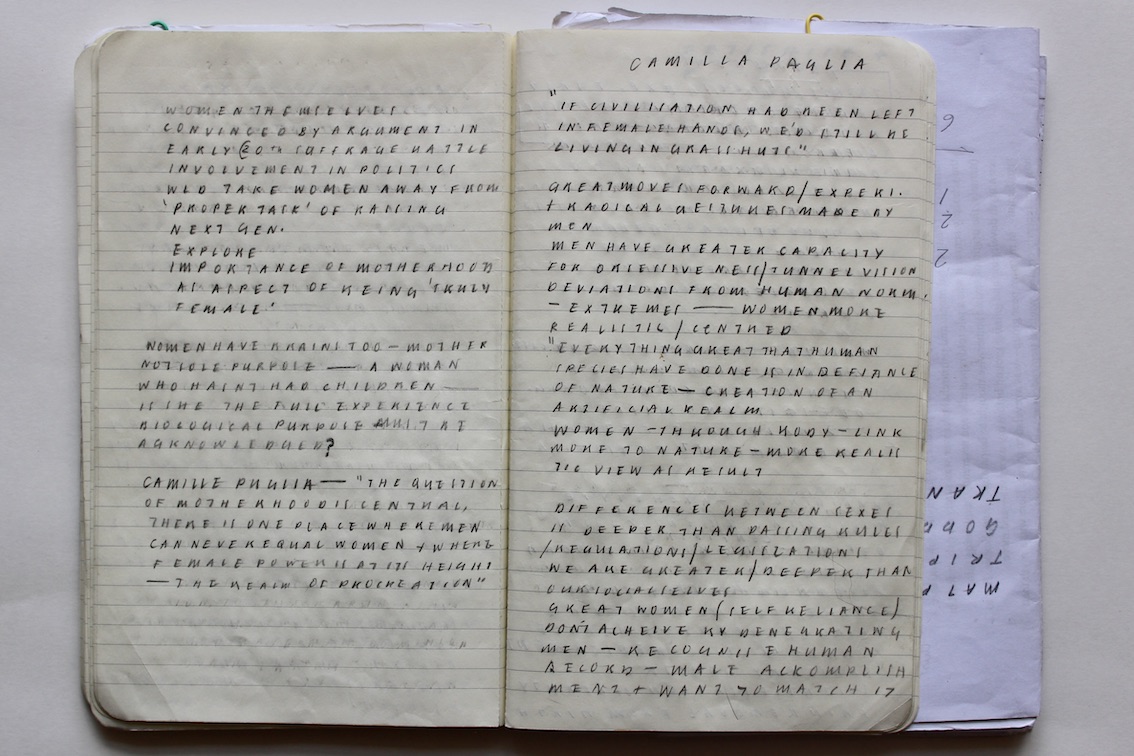 WOMEN THEMSELVES
CONVINCED BY ARGUMENT IN
EARLY 20TH SUFFRAGE BATTLE
INVOLVEMENT IN POLITICS
WLD TAKE WOMEN AWAY FROM
'PROPER TASK' OF RAISING
NEXT GEN.
EXPLORE
IMPORTANCE OF MOTHERHOOD
AS ASPECT OF BEING 'TRULY
FEMALE'
WOMEN HAVE BRAINS TOO — MOTHER
NOT SOLE PURPOSE — A WOMAN
WHO HASNT HAD CHILDREN —
IS SHE THE FULL EXPERIENCE
BIOLOGICAL PURPOSE MUST BE
ACKNOWLEDGED?
CAMILLE PAGLIA — "THE QUESTION
OF MOTHERHOOD IS CENTRAL,
THERE IS ONE PLACE WHERE MEN
CAN NEVER EQUAL WOMEN + WHERE
FEMALE POWER IS AT ITS HEIGHT
— THE REALM OF PROCREATION"
CAMILLA PAGLIA
"IF CIVILISATION HAD BEEN LEFT
IN FEMALE HANDS, WE'D STILL BE
LIVING IN GRASS HUTS"
GREAT MOVES FORWARD/EXPERI.
+ RADICAL GESTURES MADE BY
MEN
MEN HAVE GREATER CAPACITY
FOR OBSESSIVENESS/TUNNEL VISION
DEVIATIONS FROM HUMAN NORM.
— EXTREMES — WOMEN MORE
REALISTIC / CENTRED
"EVERYTHING GREAT THAT HUMAN
SPECIES HAVE DONE IS IN DEFIANCE
OF NATURE — CREATION OF AN
ARTIFICIAL REALM.
WOMEN – THROUGH BODY – LINK
MORE TO NATURE – MORE REALIS
TIC VIEW AS RESULT
DIFFERENCES BETWEEN SEXES
IS DEEPER THAN PASSING RULES
/REGULATIONS/LEGISLATIONS
WE ARE GREATER/DEEPER THAN
OUR SOCIAL SELVES
GREAT WOMEN (SELF RELIANCE)
DON'T ACHEIVE BY DENEGRATING
MEN — RECOGNISE HUMAN
RECORD — MALE ACKOMPLISH
MENT + WANT TO MATCH IT
6
1
2
2
TRAN
GOD
TRIP
MAT